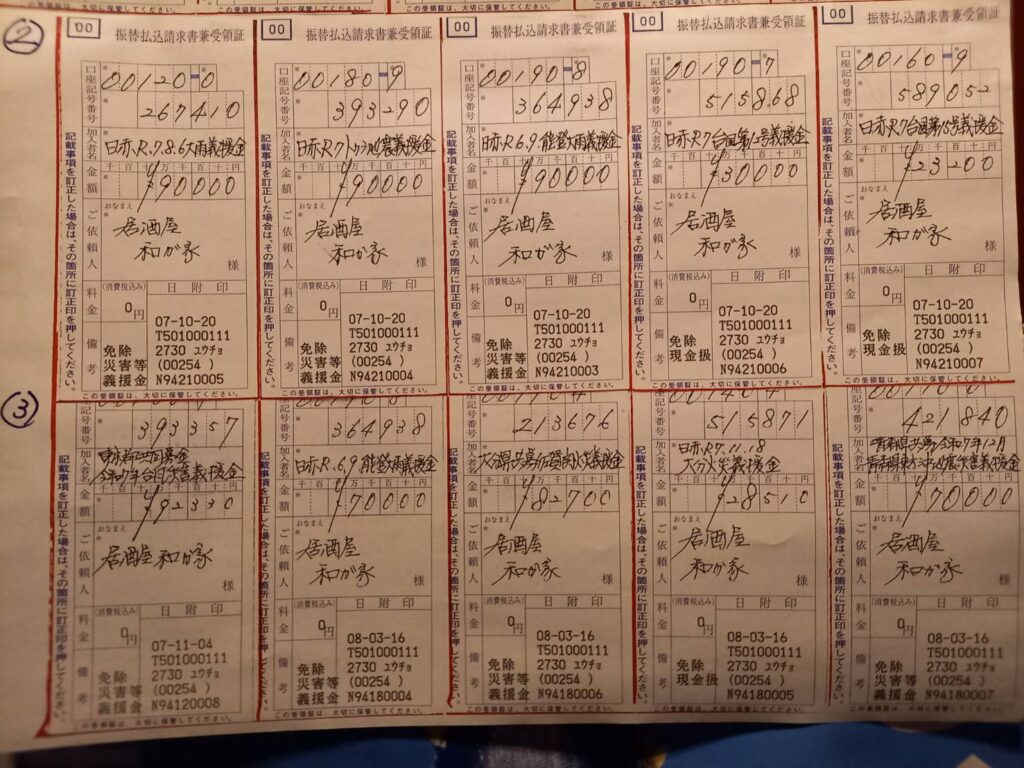 ②
00
振替払込請求書兼受領証
口座記号番号
00120-0
267410
加入者名
日赤R.7.8.6大雨義援金
金額
千百十万千百十円
¥90000
ご依頼人
おなまえ
居酒屋
和が家
様
料金
(消費税込み)
0円
日附印
備考
07-10-20
T501000111
2730 ユウチョ
(00254 )
N94210005
免除
災害等
義援金
記載事項を訂正した場合は、その箇所に訂正印を押してください。
この受領証は、大切に保管してください。
00
振替払込請求書兼受領証
口座記号番号
00180-9
393290
加入者名
金額
千百十万千百十円
¥90000
ご依頼人
おなまえ
居酒屋
和が家
様
料金
(消費税込み)
0円
日附印
備考
07-10-20
T501000111
2730 ユウチョ
(00254 )
N94210004
免除
災害等
義援金
記載事項を訂正した場合は、その箇所に訂正印を押してください。
この受領証は、大切に保管してください。
00
振替払込請求書兼受領証
口座記号番号
00190-8
364938
加入者名
日赤R.6.9能登大雨義援金
金額
千百十万千百十円
¥90000
ご依頼人
おなまえ
居酒屋
和が家
様
料金
(消費税込み)
0円
日附印
備考
07-10-20
T501000111
2730 ユウチョ
(00254 )
N94210003
免除
災害等
義援金
記載事項を訂正した場合は、その箇所に訂正印を押してください。
この受領証は、大切に保管してください。
00
振替払込請求書兼受領証
口座記号番号
00190-7
515868
加入者名
金額
千百十万千百十円
¥30000
ご依頼人
おなまえ
居酒屋
和が家
様
料金
(消費税込み)
0円
日附印
備考
07-10-20
T501000111
2730 ユウチョ
(00254 )
N94210006
免除
現金扱
記載事項を訂正した場合は、その箇所に訂正印を押してください。
この受領証は、大切に保管してください。
00
振替払込請求書兼受領証
口座記号番号
00160-9
589052
加入者名
日赤R7台風第15号義援金
金額
千百十万千百十円
¥23200
ご依頼人
おなまえ
居酒屋
和が家
様
料金
(消費税込み)
0円
日附印
備考
07-10-20
T501000111
2730 ユウチョ
(00254 )
N94210007
免除
現金扱
記載事項を訂正した場合は、その箇所に訂正印を押してください。
この受領証は、大切に保管してください。
③
記号番号
393357
加入者名
東京都共同募金
金額
千百十万千百十円
¥92330
ご依頼人
おなまえ
居酒屋 和が家
様
料金
(消費税込み)
0円
日附印
備考
07-11-04
T501000111
2730 ユウチョ
(00254 )
N94120008
免除
災害等
義援金
記載事項を訂正した場合は、その箇所に訂正印を押してください。
この受領証は、大切に保管してください。
記号番号
364938
加入者名
日赤R.6.9能登大雨義援金
金額
千百十万千百十円
¥70000
ご依頼人
おなまえ
居酒屋
和が家
様
料金
(消費税込み)
0円
日附印
備考
08-03-16
T501000111
2730 ユウチョ
(00254 )
N94180004
免除
災害等
義援金
記載事項を訂正した場合は、その箇所に訂正印を押してください。
この受領証は、大切に保管してください。
記号番号
213676
加入者名
金額
千百十万千百十円
¥82700
ご依頼人
おなまえ
居酒屋
和が家
様
料金
(消費税込み)
0円
日附印
備考
08-03-16
T501000111
2730 ユウチョ
(00254 )
N94180006
免除
災害等
義援金
記載事項を訂正した場合は、その箇所に訂正印を押してください。
この受領証は、大切に保管してください。
記号番号
515871
加入者名
日赤R7.11.18
大分火災義援金
金額
千百十万千百十円
¥28510
ご依頼人
おなまえ
居酒屋
和が家
様
料金
(消費税込み)
0円
日附印
備考
08-03-16
T501000111
2730 ユウチョ
(00254 )
N94180005
免除
現金扱
記載事項を訂正した場合は、その箇所に訂正印を押してください。
この受領証は、大切に保管してください。
記号番号
421840
加入者名
金額
千百十万千百十円
¥70000
ご依頼人
おなまえ
居酒屋
和が家
様
料金
(消費税込み)
0円
日附印
備考
08-03-16
T501000111
2730 ユウチョ
(00254 )
N94180007
免除
災害等
義援金
記載事項を訂正した場合は、その箇所に訂正印を押してください。
この受領証は、大切に保管してください。